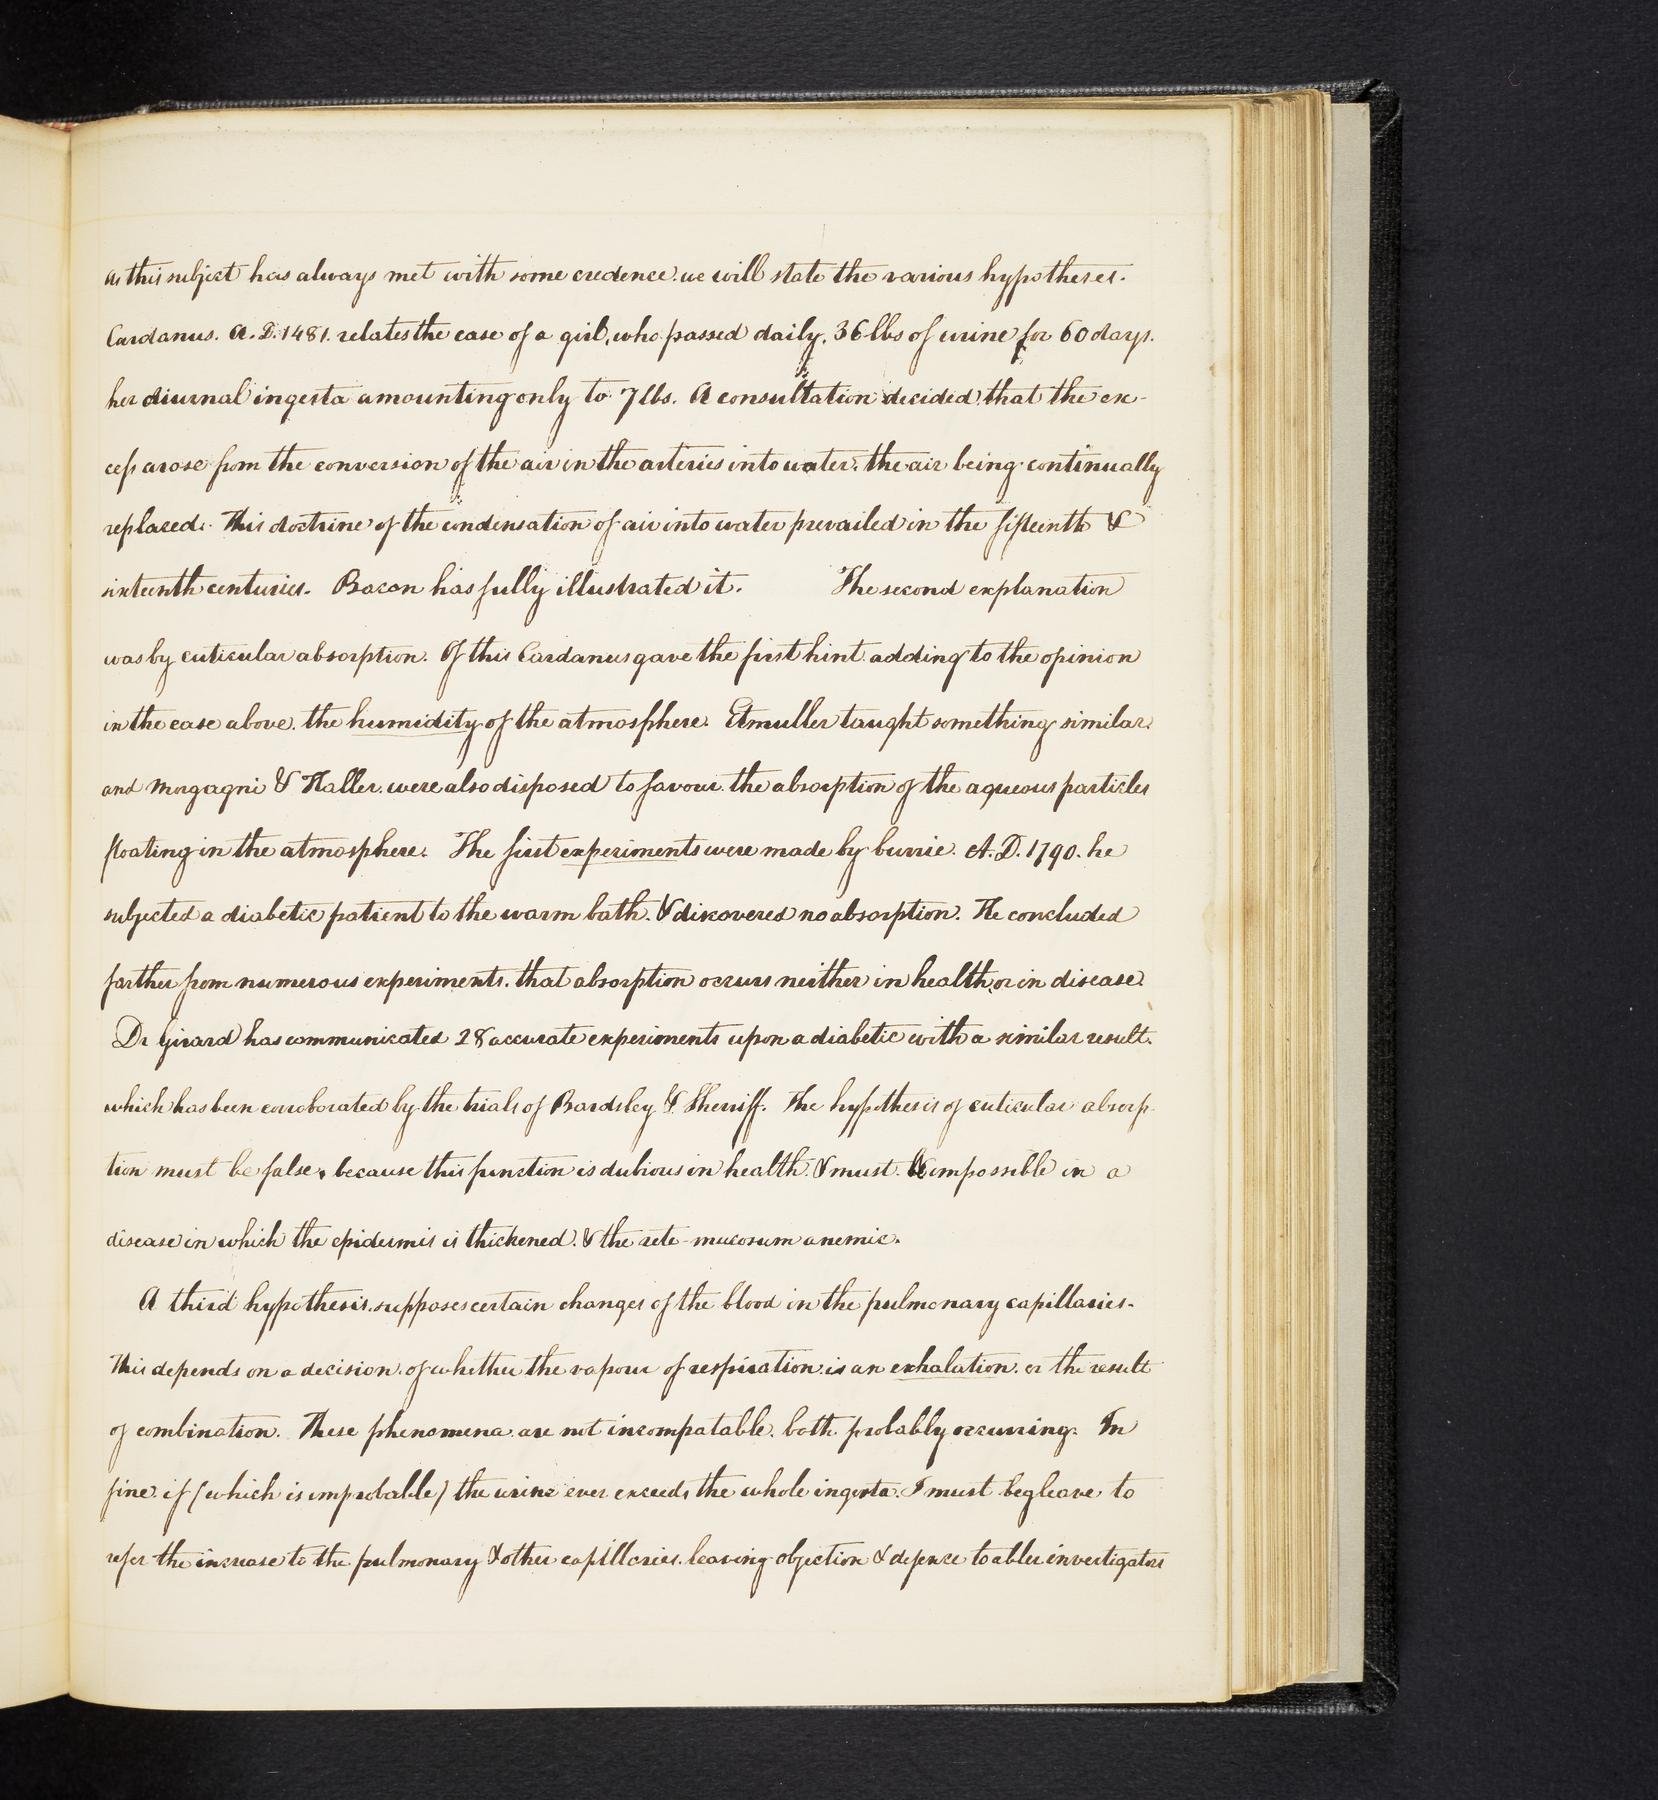 as this subject has always met with some credence. we will state the various hypotheses.
Cardanus. A. D. 1481. relates the case of a girl, who passed daily, 36 lbs of urine for 60 days.
her diurnal ingesta amounting only to 7 lbs. A consultation decided that the ex-
cess arose from the conversion of the air in the arteries into water, the air being continually
replaced. This doctrine of the condensation of air into water prevailed in the fifteenth &
sixteenth centuries. Bacon has fully illustrated it. The second explanation
was by cuticular absorption. Of this Cardanus gave the first hint adding to the opinion
in the case above, the humidity of the atmosphere. Etmuller taught something similar.
and Morgagni & Haller. were also disposed to favour the absorption of the aqueous particles
floating in the atmosphere. The first experiments were made by Currie. A. D. 1790. he
subjected a diabetic patient to the warm bath. & discovered no absorption. He concluded
farther from numerous experiments. that absorption occurs neither in health, or in disease.
Dr Girard has communicated 28 accurate experiments upon a diabetic with a similar result.
which has been corroborated by the trials of Bardsley & Sherriff. The hypothesis of cuticular absorp-
tion must be false, because this function is dubious in health. & must be impossible in a
disease in which the epidermis is thickened. & the rete-mucosum anemic.
A third hypothesis. supposes certain changes of the blood in the pulmonary capillaries.
This depends on a decision of whether the vapour of respiration is an exhalation. or the result
of combination. These phenomena are not incompatable. both probably occurring. In
fine. if (which is improbable) the urine ever exceeds the whole ingesta. I must beg leave to
refer the increase to the pulmonary & other capillaries. leaving objection & defence to abler investigators